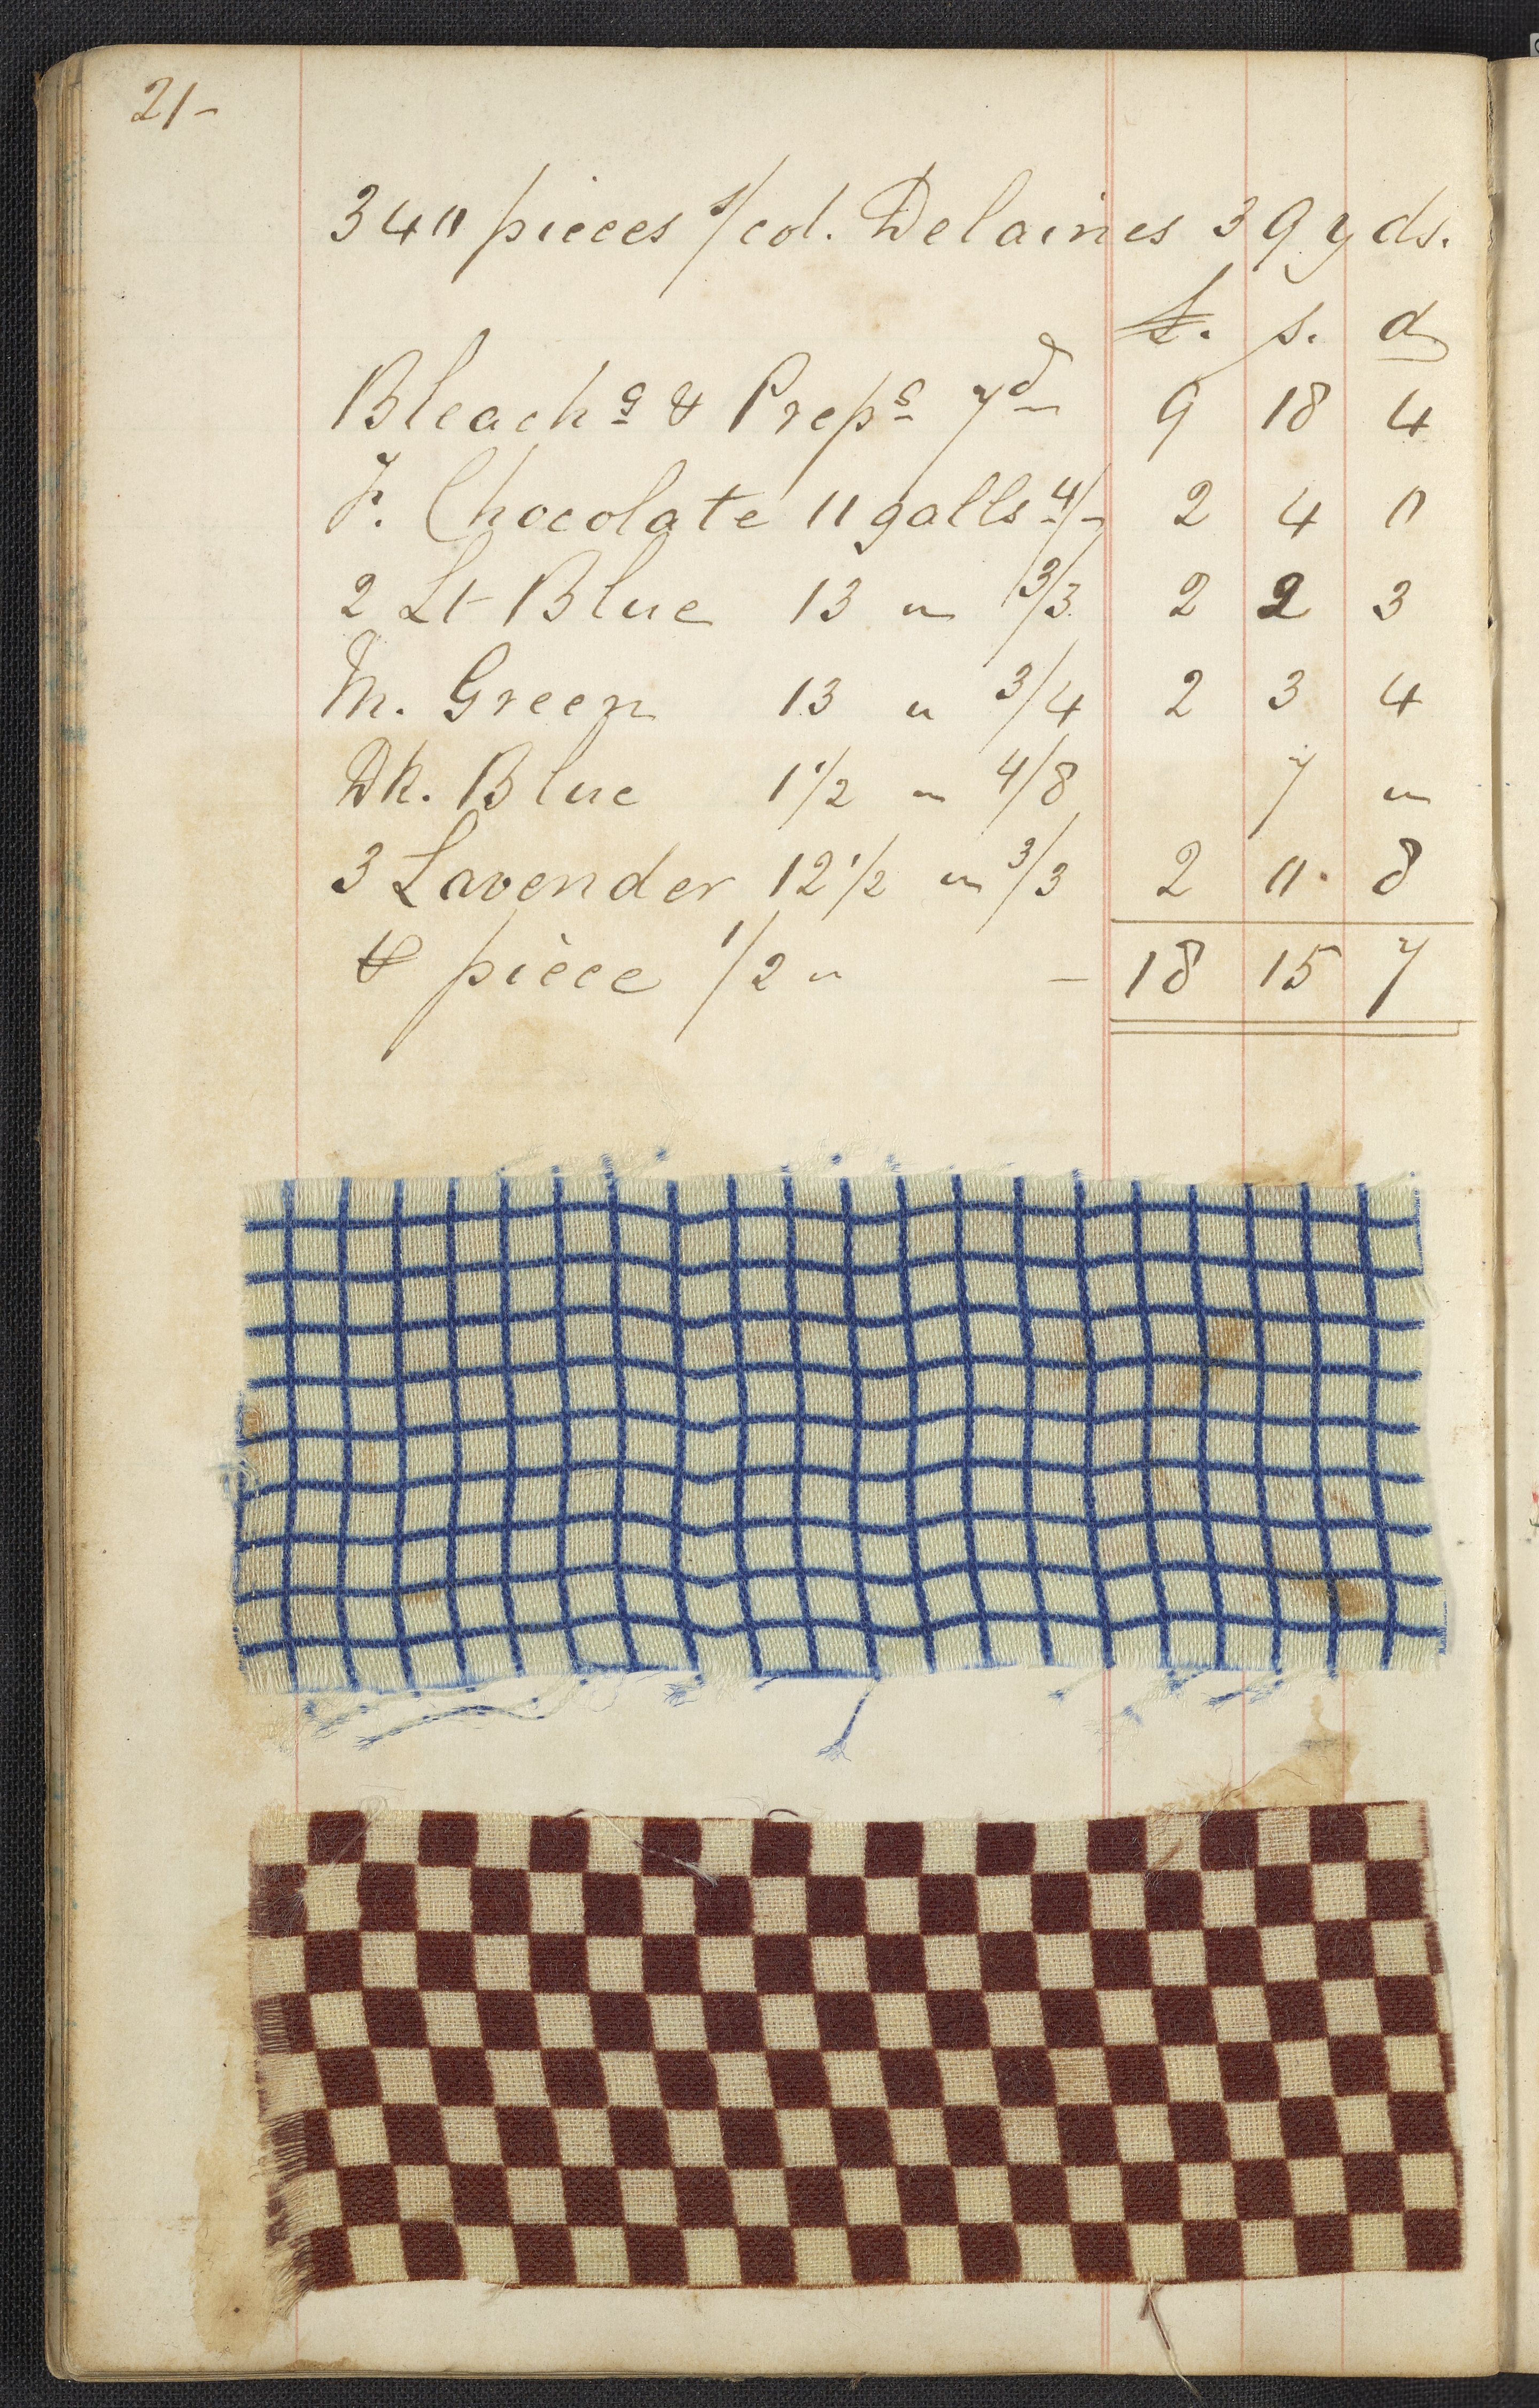 21-
340 pieces /col. Delaines 39 yds.
£. s. d
Bleachg & Prepg 7d 9 18 4
F. Chocolate 11 galls 4/- 2 4 0
2 Lt Blue 13 " 3/3 2 2 3
M. Green 13 " 3/4 2 3 4
Dk. Blue 1 1/2 " 4/8 7 "
3 Lavender 12 1/2 " 3/3 2 0. 8
⅌ piece 1/2 " - 18 15 7